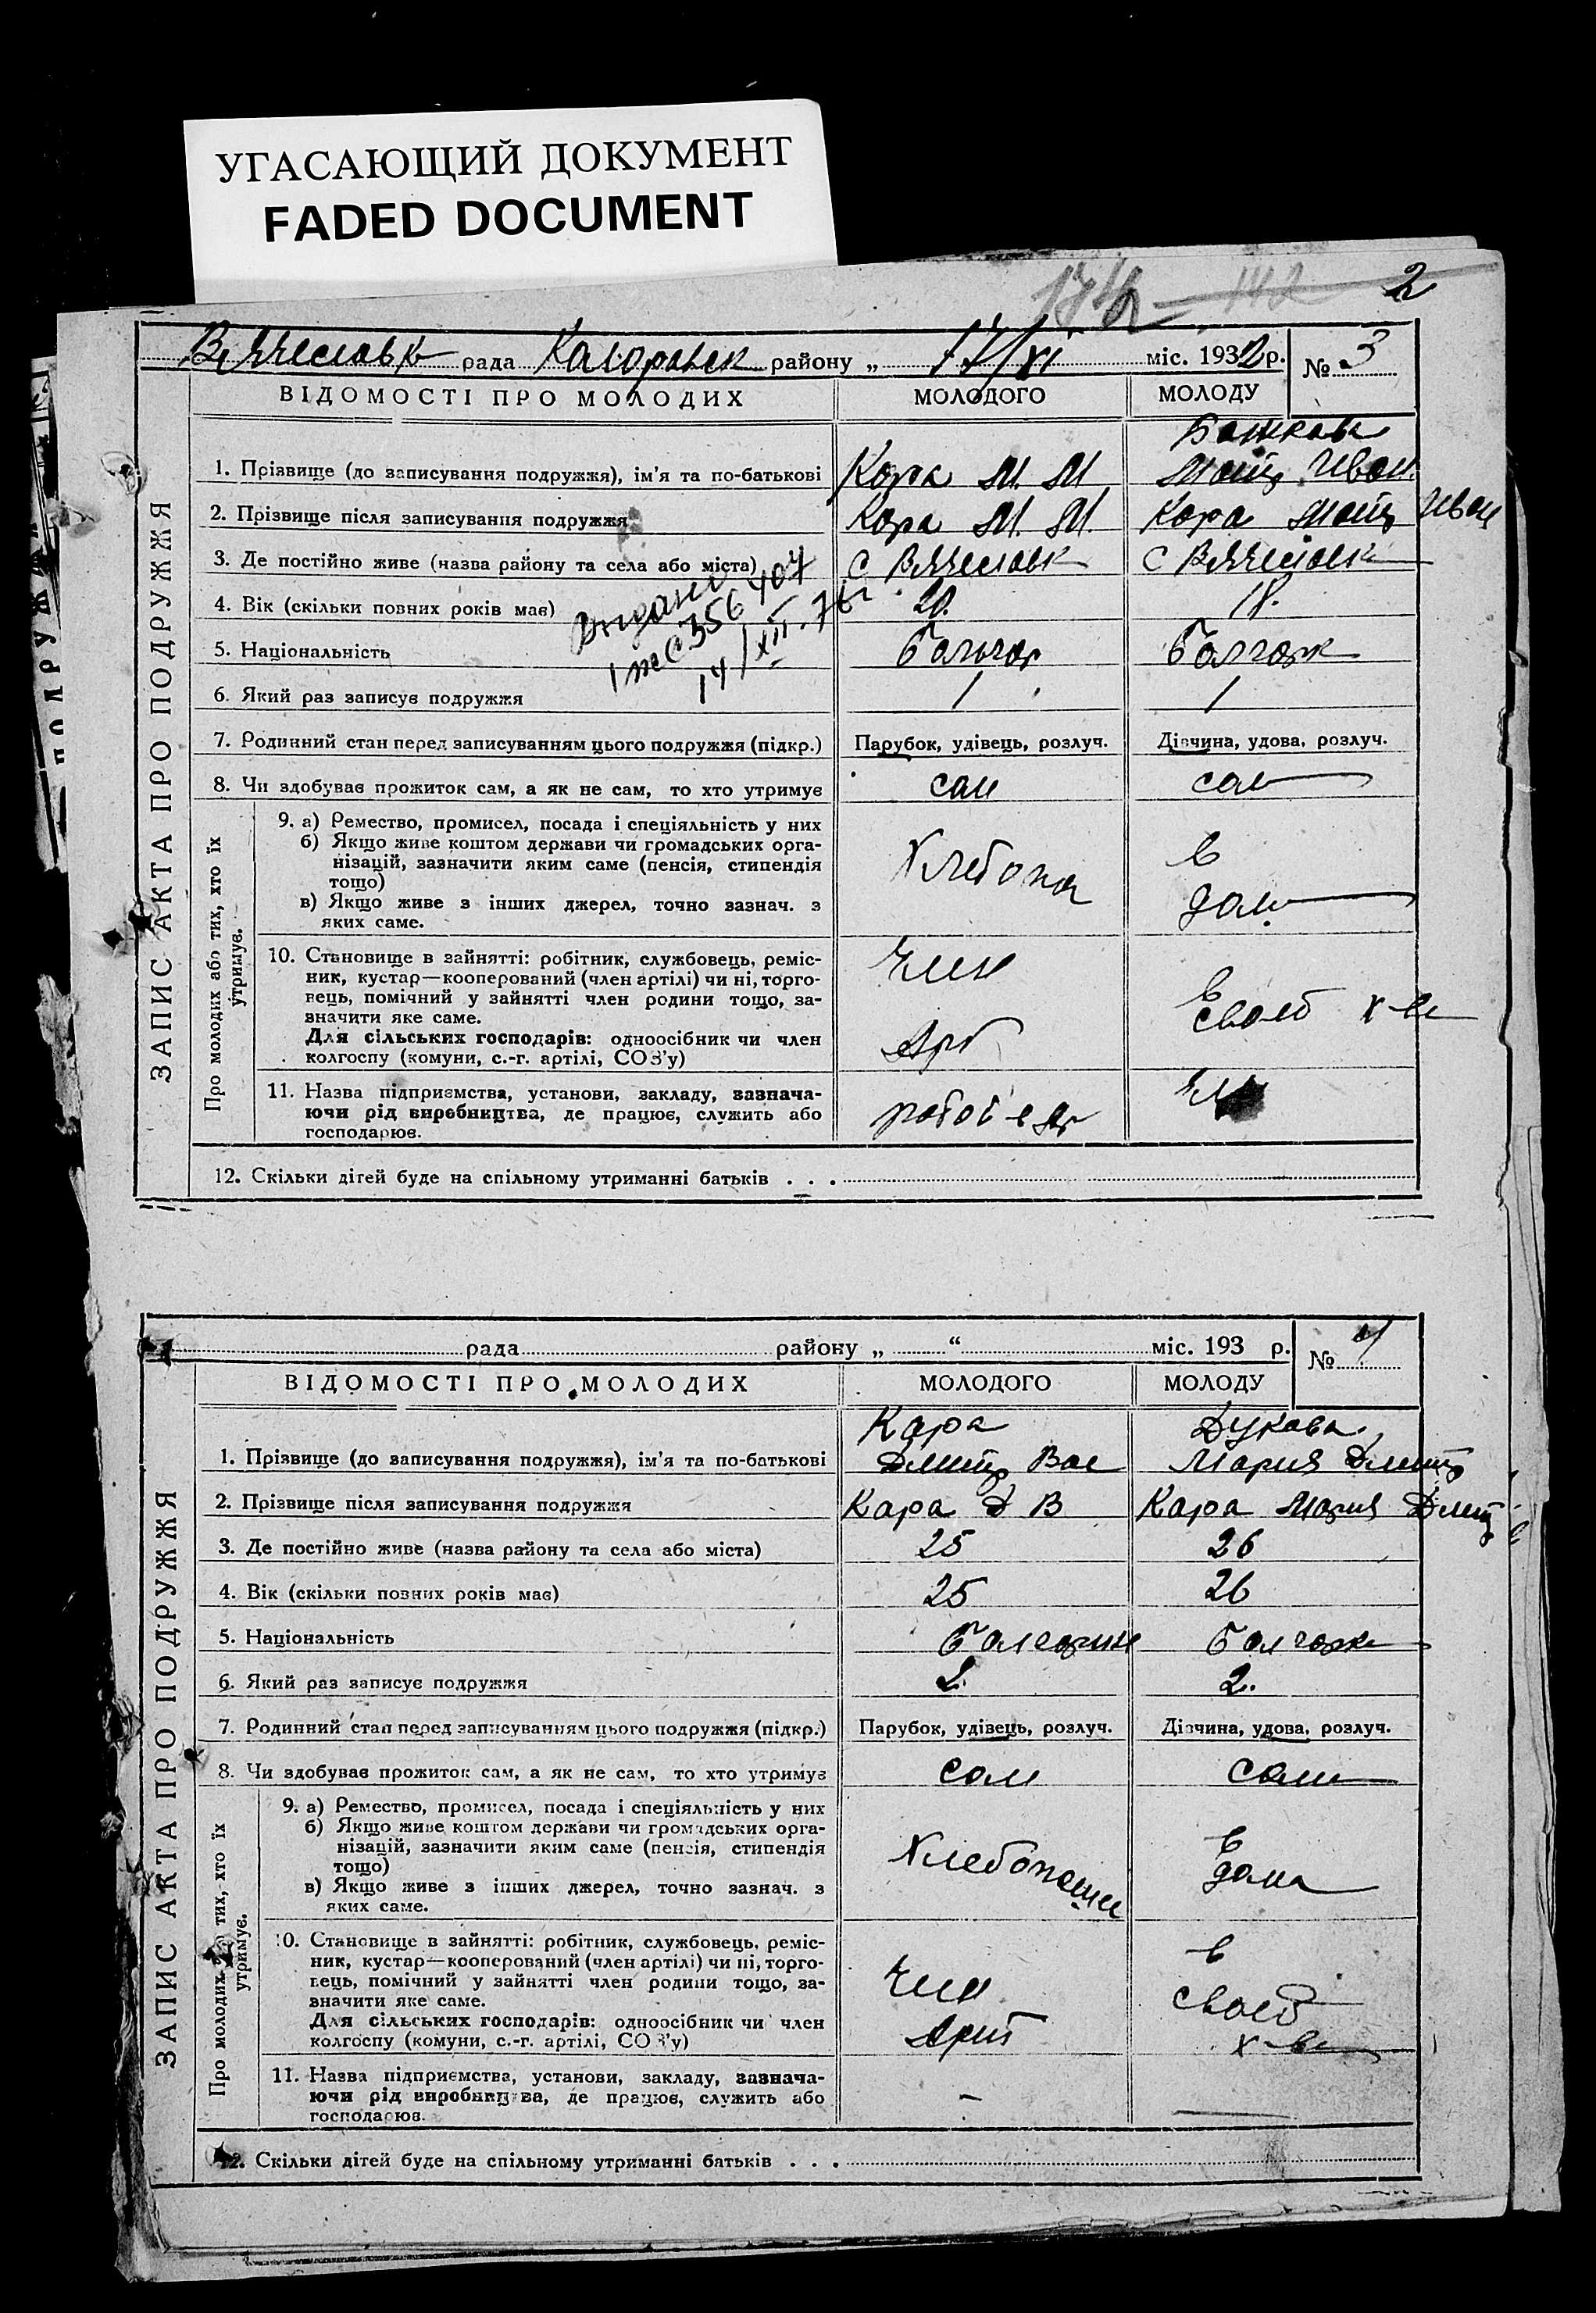 УГАСАЮЩИЙ ДОКУМЕНТ
FADED DOCUMENT
2
рада району „ 17/XI міс. 1932 р. № 3
ВІДОМОСТІ ПРО МОЛОДИХ МОЛОДОГО МОЛОДУ
ЗАПИС АКТА ПРО ПОДРУЖЖЯ
1. Прізвище (до записування подружжя), ім'я та по-батькові Кора М. М Иван.
2. Прізвище після записування подружжя Кора М. М. Кора Иван
3. Де постійно живе (назва району та села або міста) с Вячеславк с Вячеславк
4. Вік (скільки повних років має) 20. 18.
Видано
356407
14/XII-76г.
5. Національність болгар болгарк
6. Який раз записує подружжя 1 1
7. Родинний стан перед записуванням цього подружжя (підкр.) Парубок, удівець, розлуч. Дівчина, удова, розлуч.
8. Чи здобуває прожиток сам, а як не сам, то хто утримує сам сам
Про молодих або тих, хто їх утримує.
9. а) Ремество, промисел, посада і спеціяльність у них
б) Якщо живе коштом держави чи громадських орга-
нізацій, зазначити яким саме (пенсія, стипендія
тощо)
в) Якщо живе з інших джерел, точно зазнач. з
яких саме.
Хлебопа
в
дом
10. Становище в зайнятті: робітник, службовець, реміс-
ник, кустар—кооперований (член артілі) чи ні, торго-
вець, помічний у зайнятті член родини тощо, за-
значити яке саме.
Для сільських господарів: одноосібник чи член
колгоспу (комуни, с.-г. артілі, СОЗ'у)
Член
Арт
в
своем х-ве
11. Назва підприємства, установи, закладу, зазнача-
ючи рід виробництва, де працює, служить або
господарює.
12. Скільки дітей буде на спільному утриманні батьків . . .
рада району „ “ міс. 193 р. № 4
ВІДОМОСТІ ПРО МОЛОДИХ МОЛОДОГО МОЛОДУ
ЗАПИС АКТА ПРО ПОДРУЖЖЯ
Кара Дукова
1. Прізвище (до записування подружжя), ім'я та по-батькові Дмитр Вас Мария Дмитр
2. Прізвище після записування подружжя Кара Д В Кара Мария Дмит
3. Де постійно живе (назва району та села або міста) 25 26
4. Вік (скільки повних років має) 25 26
5. Національність болгарин болгарка
6. Який раз записує подружжя 2. 2.
7. Родинний стан перед записуванням цього подружжя (підкр.) Парубок, удівець, розлуч. Дівчина, удова, розлуч.
8. Чи здобуває прожиток сам, а як не сам, то хто утримує сам сама
Про молодих або тих, хто їх утримує.
9. а) Ремество, промисел, посада і спеціяльність у них
б) Якщо живе коштом держави чи громадських орга-
нізацій, зазначити яким саме (пенсія, стипендія
тощо)
в) Якщо живе з інших джерел, точно зазнач. з
яких саме.
Хлебопашец
в
дома
10. Становище в зайнятті: робітник, службовець, реміс-
ник, кустар—кооперований (член артілі) чи ні, торго-
вець, помічний у зайнятті член родини тощо, за-
значити яке саме.
Для сільських господарів: одноосібник чи член
колгоспу (комуни, с.-г. артілі, СОЗ'у)
Член
Арт
в
своем
х-ве
11. Назва підприємства, установи, закладу, зазнача-
ючи рід виробництва, де працює, служить або
господарює.
12. Скільки дітей буде на спільному утриманні батьків . . .